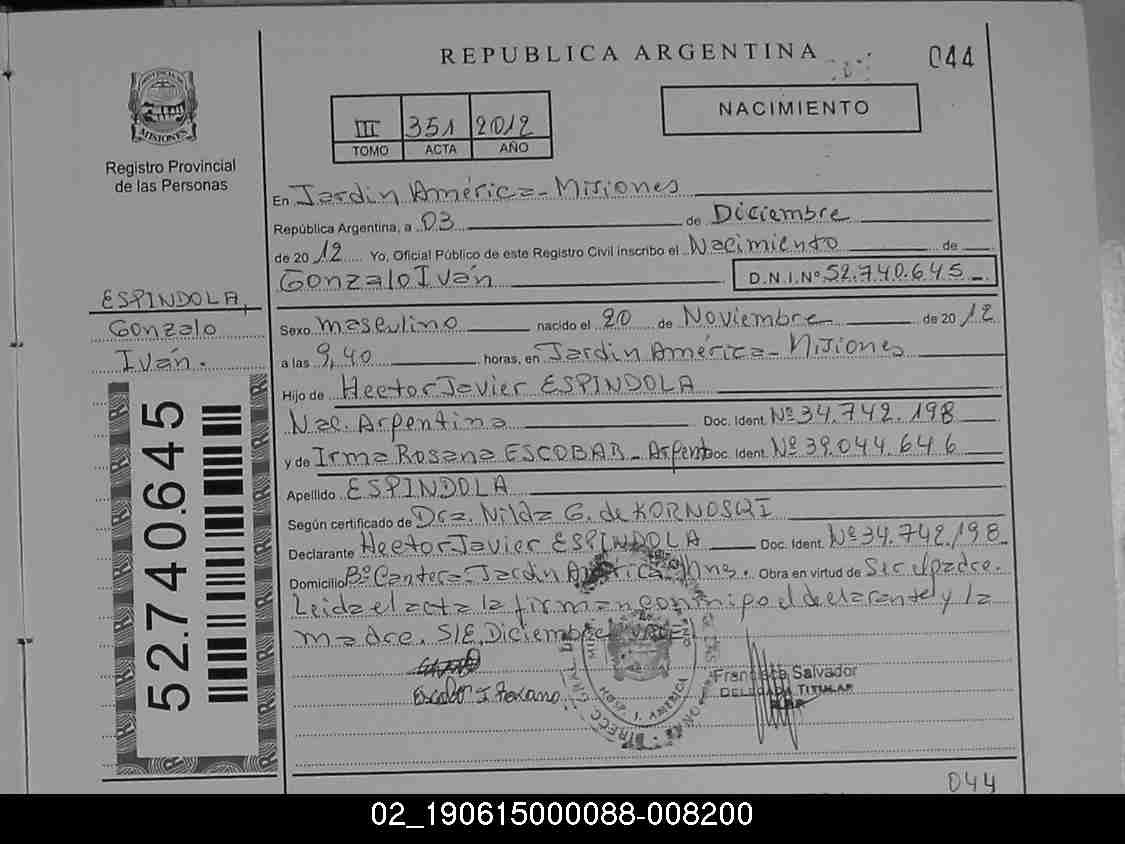 REPUBLICA ARGENTINA
044
PROVINCIA DE
MISIONES
Registro Provincial
de las Personas
III 351 2012
TOMO ACTA AÑO
NACIMIENTO
En Jardín América - Misiones
República Argentina, a 03 de Diciembre
de 20 12 Yo, Oficial Público de este Registro Civil inscribo el Nacimiento de
Gonzalo Iván D.N.I.Nº 52.740.645
ESPINDOLA,
Gonzalo
Iván.
Sexo masculino nacido el 20 de Noviembre de 20 12
a las 9,40 horas, en Jardín América - Misiones
Hijo de Hector Javier ESPINDOLA
Nac. Argentina Doc. Ident. Nº 34.742.198
y de Irma Rosana ESCOBAR - Argent Doc. Ident. Nº 39.044.646
Apellido ESPINDOLA
Según certificado de Dra. Nilda G. de KORNOSQI
Declarante Hector Javier ESPINDOLA Doc. Ident. Nº 34.742.198
Domicilio Bº Cantera - Jardín América Mns. Obra en virtud de Ser el padre.
Leida el acta la firman conmigo el declarante y la
madre. S/E, Diciembre
52.740.645
Escobar I. Roxana
Salvador
DELEGADA TITULAR
HOSP. J. AMERICA
044
02_190615000088-008200